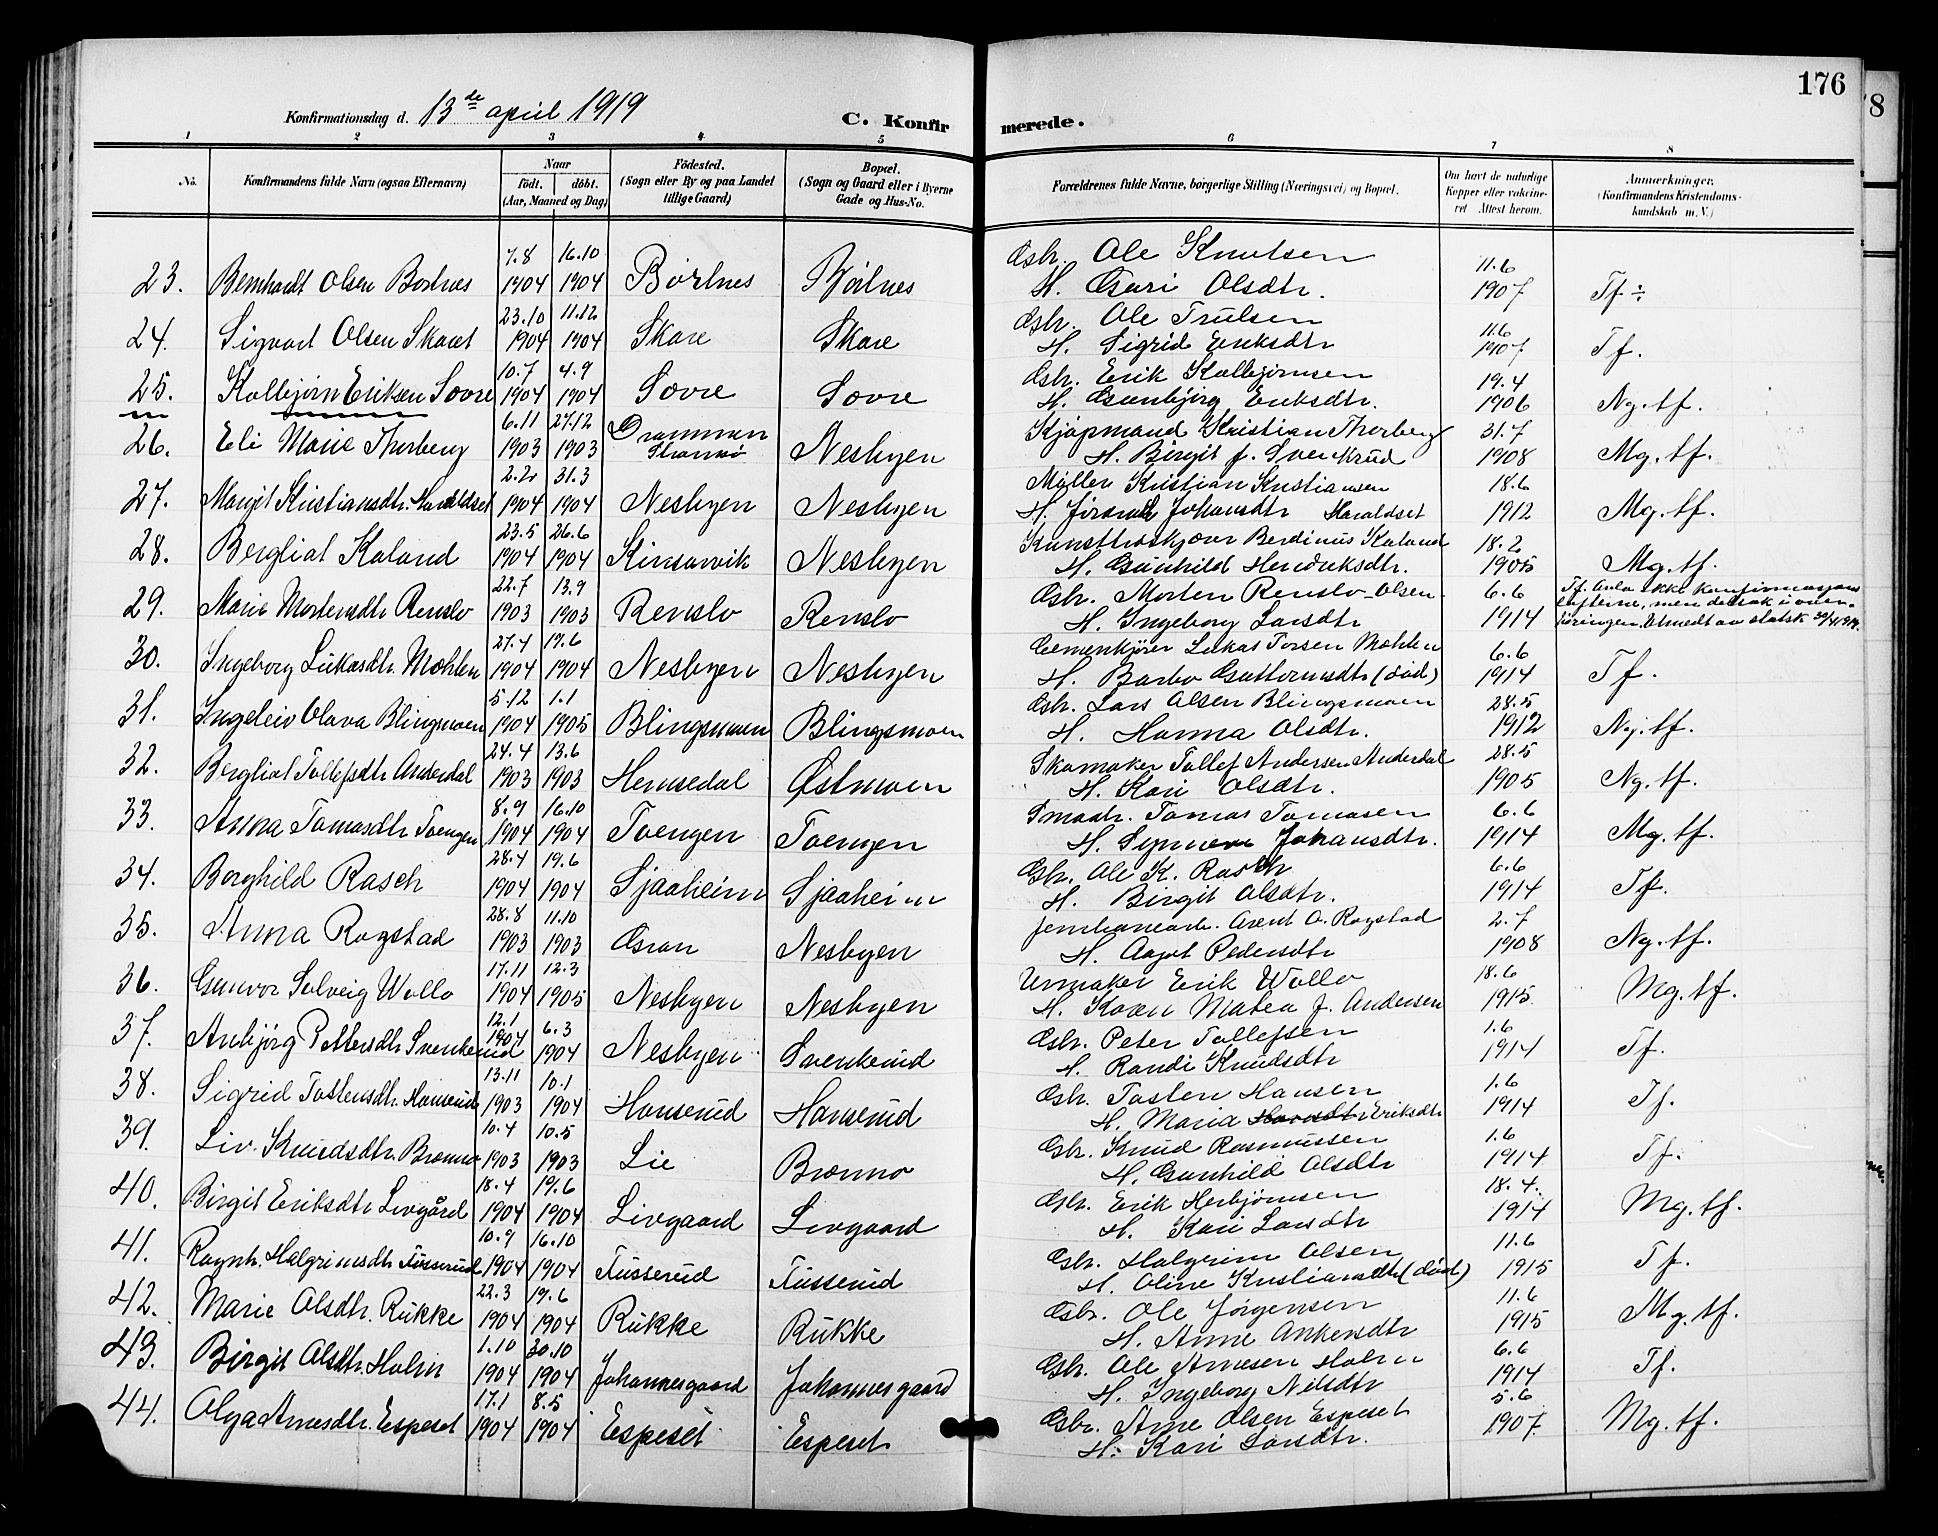 176
Konfirmationsdag d. 13de april 1919
C. Konfirmerede.
1 2 3 4 5 6 7 8
No.
Konfirmandens fulde Navn (ogsaa Efternavn)
Naar
födt. döbt.
(Aar, Maaned og Dag)
Födested.
(Sogn eller By og paa Landet
tillige Gaard)
Bopæl.
(Sogn og Gaard eller i Byerne
Gade og Hus-No.
Forældrenes fulde Navne, borgerlige Stilling (Næringsvei) og Bopæl.
Om havt de naturlige
Kopper eller vakcine-
ret Attest herom.
Anmærkninger.
(Konfirmandens Kristendoms-
kundskab m. V.)
7.8 16.10 Gbr. Ole Knutsen 11.6
23. Bernhardt Olsen Börtnes 1904 1904 Börtnes Börtnes H. Guri Olsdtr. 1907 Tf ÷
23.10 11.12 Gbr. Ole Trulsen 11.6
24. Sigvart Olsen Skaret 1904 1904 Skare Skare H. Sigrid Eriksdtr 1907 Tf.
10.7 4.9 Gbr. Erik Kolbjörnsen 19.4
25. Kolbjörn Eriksen Sevre 1904 1904 Sevre Sevre H. Gunbjörg Eriksdtr. 1906 Ng. tf.
6.11 27.12 Drammen Kjöpmand Kristian Thorberg 31.7
26. Eli Marie Thorberg 1903 1903 Strömsö Nesbyen H. Birgit f. Svenkrud 1908 Mg. tf.
2.2 31.3 Möller Kristian Kristiansen 18.6
27. Margit Kristiansdtr. Haraldset 1904 1904 Nesbyen Nesbyen H. Jörand Johansdtr Haraldset 1912 Mg. tf.
23.5 26.6 Berdinus Kaland 18.2
28. Bergliot Kaland 1904 1904 Kinsarvik Nesbyen H. Gunhild Henriksdtr. 1905 Mg. tf.
22.7 13.9 Gbr. Morten Renslo-Olsen 6.6 Tf. Avla ikke konfirmasjons
29. Marie Mortensdtr Renslo 1903 1903 Renslo Renslo H. Ingeborg Larsdtr 1914 löfterne, men deltok i over-
27.4 19.6 Lukas Torsen Mæhlen 6.6
30. Ingeborg Lukasdtr. Mæhlen 1904 1904 Nesbyen Nesbyen H. Barbo Guttormsdtr (död) 1914 Tf.
5.12 1.1 Gbr. Lars Olsen Blingsmoen 28.5
31. Ingeleiv Olava Blingsmoen 1904 1905 Blingsmoen Blingsmoen H. Hanna Olsdtr. 1912 Ng. tf.
24.4 13.6 Skomaker Tollef Andersen Anderdal 28.5
32. Bergliot Tollefsdtr Anderdal 1903 1903 Hemsedal Østmoen H. Kari Olsdtr. 1905 Ng. tf.
8.9 16.10 Smaabr. Tomas Tomasen 6.6
33. Anna Tomasdtr Toengen 1904 1904 Toengen Toengen H. Synneve Johansdtr. 1914 Mg. tf.
28.4 19.6 Gbr. Ole K. Rasch 6.6
34. Borghild Rasch 1904 1904 Sjaaheim Sjaaheim H. Birgit Olsdtr. 1914 Tf.
28.8 11.10 Jernbanearb. Arent O. Rogstad 2.7
35. Anna Rogstad 1903 1903 Gran Nesbyen H. Aagot Pedersdtr 1908 Ng. tf.
17.11 12.3 Urmaker Erik Wollo 18.6
36. Gunvor Solveig Wollo 1904 1905 Nesbyen Nesbyen H. Karen Matea f. Andersen 1915 Mg. tf.
12.1 6.3 Gbr. Peter Tollefsen 1.6
37. Anbjörg Pettersdtr Svenkerud 1904 1904 Nesbyen Svenkerud H. Randi Knudsdtr 1914 Tf.
13.11 10.1 Gbr. Tosten Hansen 1.6
38. Sigrid Tostensdtr. Hanserud 1903 1904 Hanserud Hanserud H. Maria Eriksdtr 1914 Tf.
10.4 10.5 Gbr. Knud Rasmussen 1.6
39. Liv Knudsdtr. Brenno 1903 1903 Lie Brenno H. Gunhild Olsdtr 1914 Tf.
18.4 19.6 Gbr. Erik Herbjörnsen 18.4.
40. Birgit Eriksdtr Livgård 1904 1904 Livgaard Livgaard H. Kari Larsdtr 1914 Mg. tf.
10.9 16.10 Gbr. Halgrim Olsen 11.6
41. Ragnh. Halgrimsdtr Tusserud 1904 1904 Tusserud Tusserud H. Oline Kristiansdtr (död) 1915 Tf.
22.3 19.6 Gbr. Ole Jörgensen 11.6
42. Marie Olsdtr. Rukke 1904 1904 Rukke Rukke H. Anne Ankersdtr 1915 Mg. tf.
1.10 30.10 Gbr. Ole Arnesen Holm 6.6
43. Birgit Olsdtr. Holm 1904 1904 Johannesgaard Johannesgaard H. Ingeborg Nilsdtr 1914 Tf.
17.1 8.5 Gbr. Arne Olsen Espeset 5.6
44. Olga Arnesdtr. Espeset 1904 1904 Espeset Espeset H. Kari Larsdtr. 1907 Mg. tf.